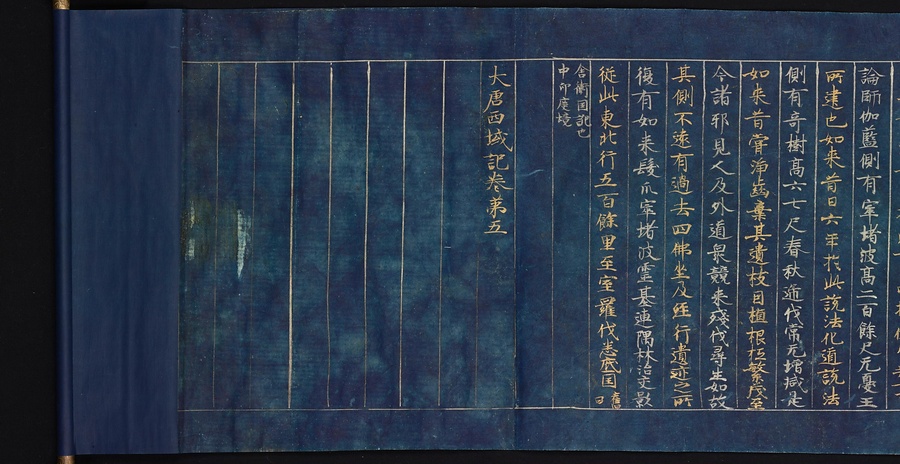 論師伽藍側有窣堵波高二百餘尺无憂王
所遣也如来昔日六年於此說法化道說法
側有奇樹高六七尺春秋遞代常无增減是
如来昔嘗淨齒棄其遺枝因植根柢繁茂至
今諸邪見人及外道衆競来殘伐尋生如故
其側不遠有過去四佛坐及經行遺迹之所
復有如来髮爪窣堵波霊基連隅林沼交影
従此東北行五百餘里至室羅伐悉底国舊曰
舎衛国訛也
中印度境
大唐西域記巻第五